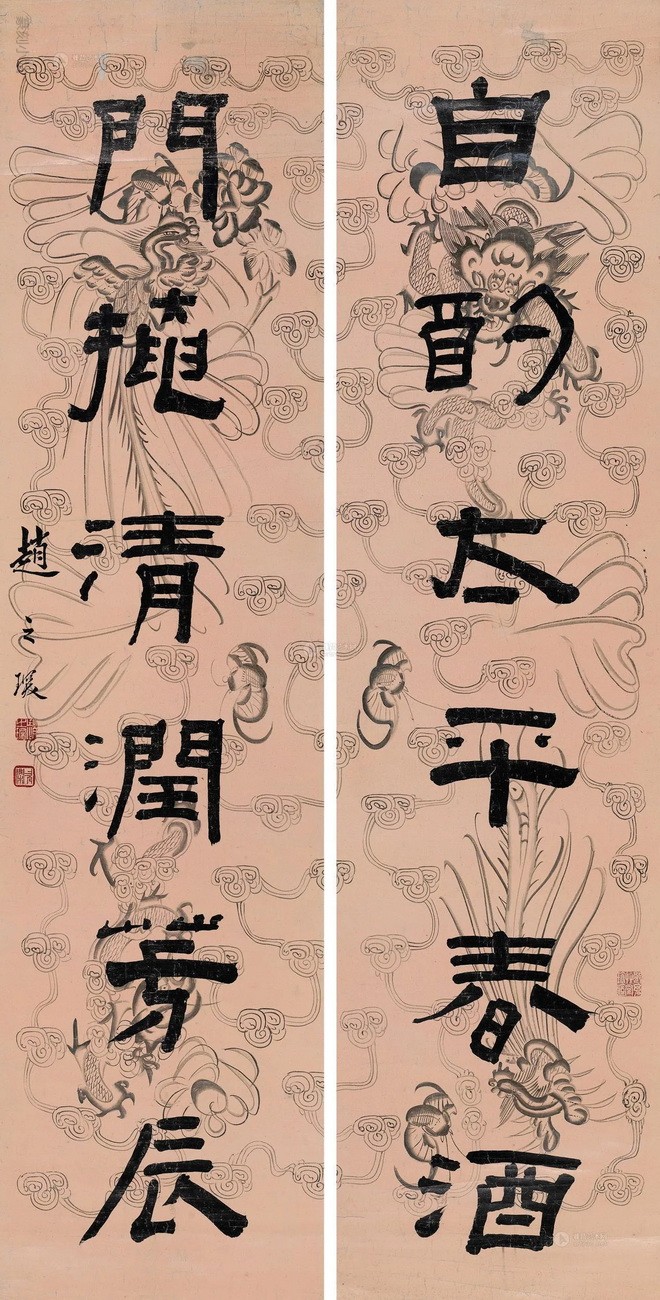 自酌太平春酒
門掩清潤芳辰
趙之琛